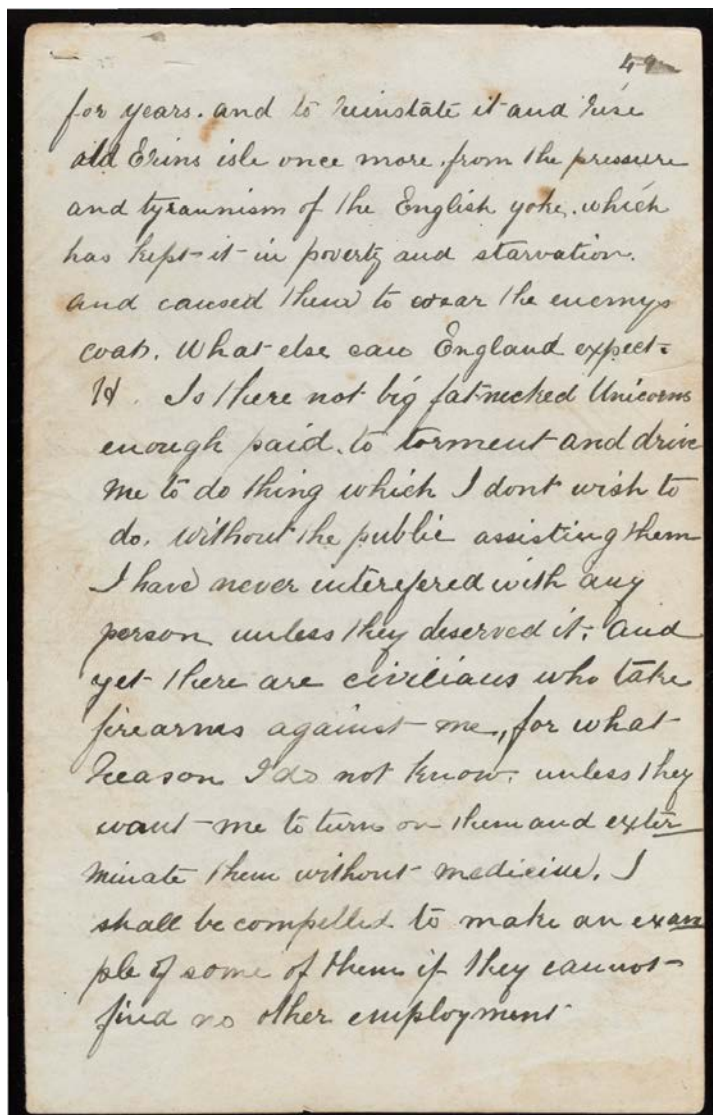 49
for years. and to reinstate it and rise
old Erins isle once more. from the pressure
and tyrannism of the English yoke. which
has kept it in poverty and starvation.
and caused them to wear the enemys
coat. What else can England expect.
Is there not big fat necked Unicorns
enough paid. to torment and drive
me to do thing which I dont wish to
do. without the public assisting them
I have never interefered with any
person unless they deserved it. and
yet there are civilians who take
firearms against me, for what
reason I do not know. unless they
want me to turn on them and exter
minate them without medicine. I
shall be compelled to make an exam
ple of some of them if they cannot
find no other employment